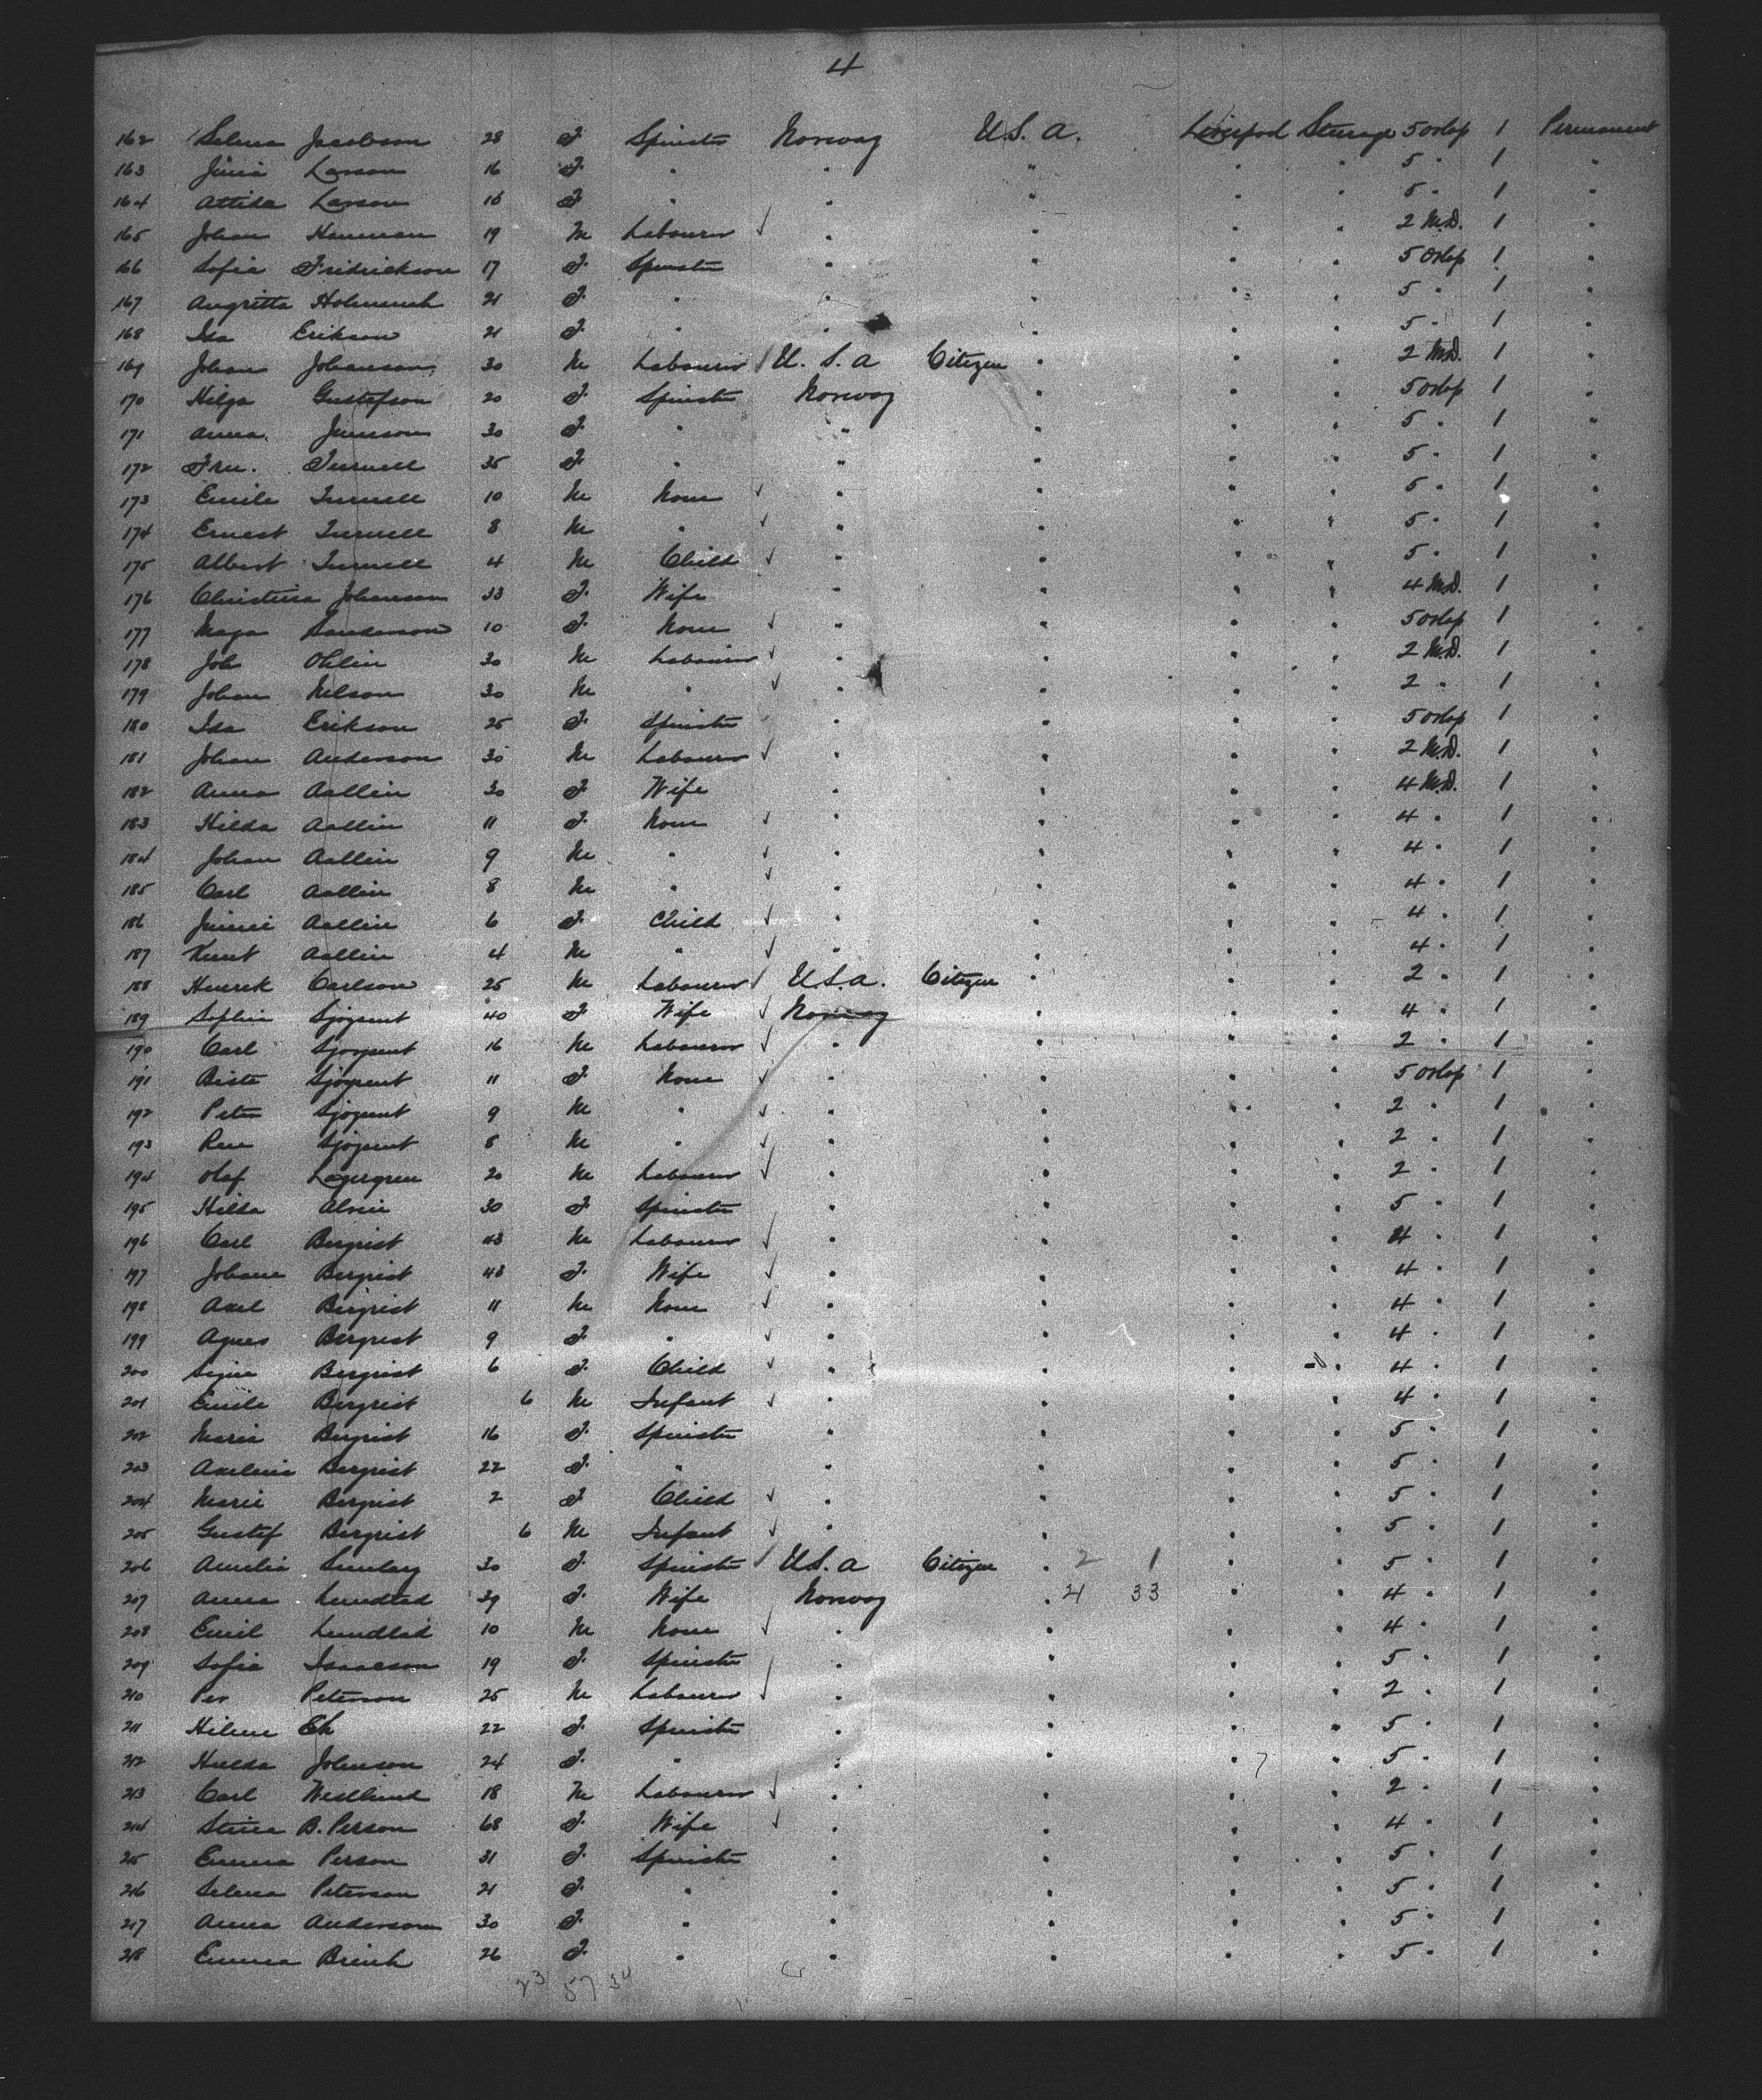 4
162 Selma Jacobson 28 F. Spinster Norway U.S.A. Liverpool Steerage 5 Orlop 1 Permanent
163 Larson 16 F. " " " " " 5 " 1 "
164 Attila Larson 16 F. " " " " " 5 " 1 "
165 Johan 19 M Labourer " " " " 2 M.D. 1 "
166 Sofia Fridrickson 17 F. Spinster " " " " 5 Orlop 1 "
167 Angritta 21 F. " " " " " 5 " 1 "
168 Ida Erikson 21 F. " " " " " 5 " 1 "
169 Johan Johanson 30 M Labourer U.S.A Citizen " " " 2 M.D. 1 "
170 Hilga Gustafson 20 F. Spinster Norway " " " 5 Orlop 1 "
171 Anna 30 F. " " " " " 5 " 1 "
172 Fru. 35 F. " " " " " 5 " 1 "
173 Emile 10 M None " " " " 5 " 1 "
174 Ernest 8 M " " " " " 5 " 1 "
175 Albert 4 M Child " " " " 5 " 1 "
176 Christina Johanson 33 F. Wife " " " " 4 M.D. 1 "
177 Maja Sanderson 10 F. None " " " " 5 Orlop 1 "
178 Joh Ohlin 30 M Labourer " " " " 2 M.D. 1 "
179 Johan Nilson 30 M " " " " " 2 " 1 "
180 Ida Erikson 25 F. Spinster " " " " 5 Orlop 1 "
181 Johan Anderson 30 M Labourer " " " " 2 M.D. 1 "
182 Anna Aallin 30 F Wife " " " " 4 M.D. 1 "
183 Hilda Aallin 11 F. None " " " " 4 " 1 "
184 Johan Aallin 9 M " " " " " 4 " 1 "
185 Carl Aallin 8 M " " " " " 4 " 1 "
186 Aallin 6 F. Child " " " " 4 " 1 "
187 Knut Aallin 4 M " " " " " 4 " 1 "
188 Henrek Carlson 25 M Labourer U.S.A. Citizen " " " 2 " 1 "
189 Sophia 40 F Wife Norway " " " 4 " 1 "
190 Carl 16 M Labourer " " " " 2 " 1 "
191 11 F. None " " " " 5 Orlop 1 "
192 Peter 9 M " " " " " 2 " 1 "
193 8 M " " " " " 2 " 1 "
194 Olaf Lagergren 20 M Labourer " " " " 2 " 1 "
195 Hilda 30 F. Spinster " " " " 5 " 1 "
196 Carl Bergrist 43 M Labourer " " " " 4 " 1 "
197 Johane Bergrist 43 F. Wife " " " " 4 " 1 "
198 Axel Bergrist 11 M None " " " " 4 " 1 "
199 Agnes Bergrist 9 F. " " " " " 4 " 1 "
200 Signe Bergrist 6 F. Child " " " " 4 " 1 "
201 Emile Bergrist 6 M Infant " " " " 4 " 1 "
202 Maria Bergrist 16 F. Spinster " " " " 5 " 1 "
203 Axelina Bergrist 22 F. " " " " " 5 " 1 "
204 Marie Bergrist 2 F Child " " " " 5 " 1 "
205 Gustef Bergrist 6 M Infant " " " " 5 " 1 "
206 Amelia 30 F. Spinster U.S.A Citizen " 2 1 " " 5 " 1 "
207 Anna 39 F. Wife Norway " 21 33 " " 4 " 1 "
208 Emil 10 M None " " " " 4 " 1 "
209 Sofia Isaacson 19 F. Spinster " " " " 5 " 1 "
210 Per Peterson 25 M Labourer " " " " 2 " 1 "
211 Ek 22 F. Spinster " " " " 5 " 1 "
212 Hulda Johnson 24 F. " " " " " 5 " 1 "
213 Carl Westlund 18 M Labourer " " " " 2 " 1 "
214 Stina B. Person 68 F. Wife " " " " 4 " 1 "
215 Emma Person 31 F. Spinster " " " " 5 " 1 "
216 Selma Peterson 21 F. " " " " " 5 " 1 "
217 Anna Anderson 30 F. " " " " " 5 " 1 "
218 Emma 26 F. " " " " " 5 " 1 "
23 57 34